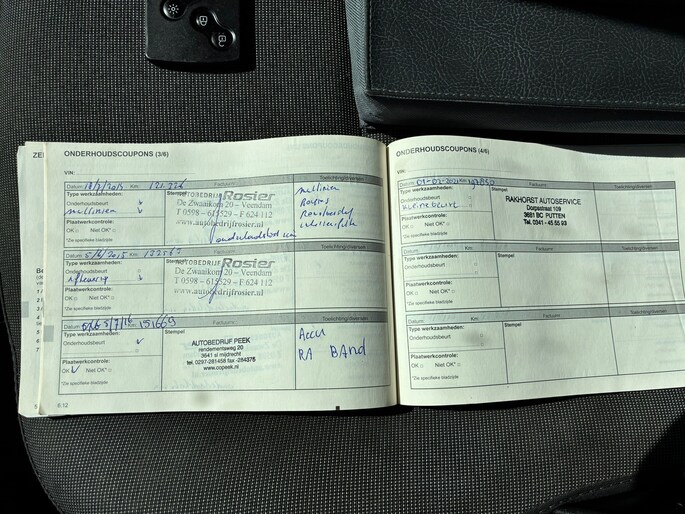 ZE
ONDERHOUDSCOUPONS (3/6)
VIN:
Datum: Km: Factuurnr. Toelichting/diversen
Type werkzaamheden: Stempel
Onderhoudsbeurt
Plaatwerkcontrole:
OK Niet OK*
*Zie specifieke bladzijde
AUTOBEDRIJF Rosier
De Zwaaikom 20 – Veendam
T 0598 – 615529 – F 624 112
www.autobedrijfrosier.nl
Datum: Km: Factuurnr. Toelichting/diversen
Type werkzaamheden: Stempel
Onderhoudsbeurt
aflevering
Plaatwerkcontrole:
OK Niet OK*
*Zie specifieke bladzijde
AUTOBEDRIJF Rosier
De Zwaaikom 20 – Veendam
T 0598 – 615529 – F 624 112
www.autobedrijfrosier.nl
Datum: Km: 151669 Factuurnr. Toelichting/diversen
Type werkzaamheden: Stempel
Onderhoudsbeurt
Plaatwerkcontrole:
OK Niet OK*
*Zie specifieke bladzijde
AUTOBEDRIJF PEEK
rendementsweg 20
3641 sl mijdrecht
tel. 0297-281458 fax -284375
www.copeek.nl
Accu
RA BAnd
6.12
ONDERHOUDSCOUPONS (4/6)
VIN:
Datum: Km: Factuurnr. Toelichting/diversen
Type werkzaamheden: Stempel
Onderhoudsbeurt
Kleine Beurt
Plaatwerkcontrole:
OK Niet OK*
*Zie specifieke bladzijde
RAKHORST AUTOSERVICE
Dorpsstraat 109
3881 BC PUTTEN
Tel. 0341 - 45 55 93
Datum: Km: Factuurnr. Toelichting/diversen
Type werkzaamheden: Stempel
Onderhoudsbeurt
Plaatwerkcontrole:
OK Niet OK*
*Zie specifieke bladzijde
Datum: Km: Factuurnr. Toelichting/diversen
Type werkzaamheden: Stempel
Onderhoudsbeurt
Plaatwerkcontrole:
OK Niet OK*
*Zie specifieke bladzijde